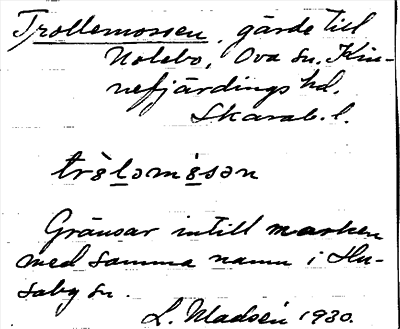 Trollemossen, gärde till
Nolebo, Ova sn. Kin-
nefjärdings hd.
Skarab. l.
tròləmósən
Gränsar intill marken
med samma namn i Hu-
saby sn.
L. Madsén 1930.